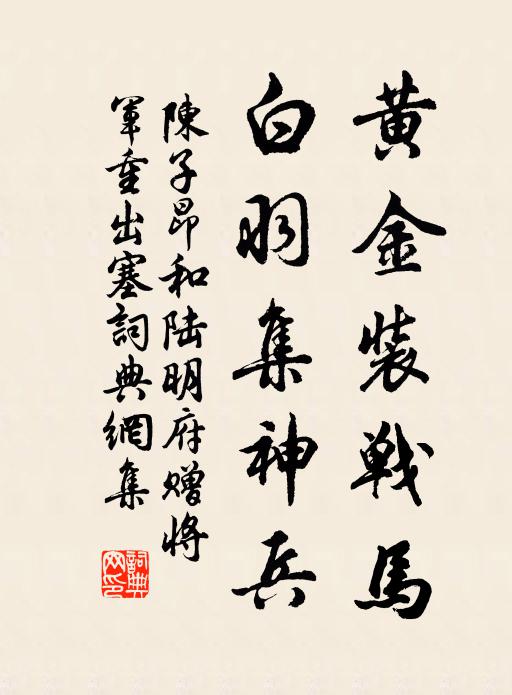 黄金装戦馬
白羽集神兵
陳子昂和陸明府赠將
軍重出塞詞典網集
詞典
网印